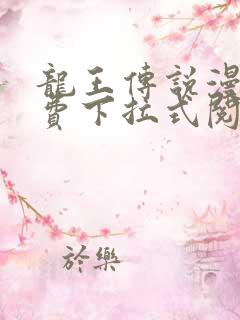 龍王傳說漫
費下拉式閱
於樂